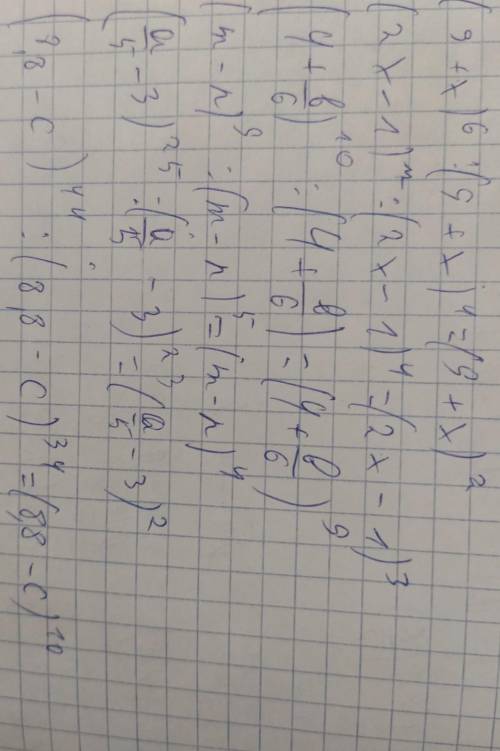 (9 + x)⁶ : (9 + x)⁴ = (9 + x)²
(2x - 1)⁷ : (2x - 1)⁴ = (2x - 1)³
(y + b/6)¹⁰ : (y + b/6) = (y + b/6)⁹
(m - n)⁹ : (m - n)⁵ = (m - n)⁴
(a/5 - 3)²⁵ : (a/5 - 3)²³ = (a/5 - 3)²
(8,8 - c)⁴⁴ : (8,8 - c)³⁴ = (8,8 - c)¹⁰